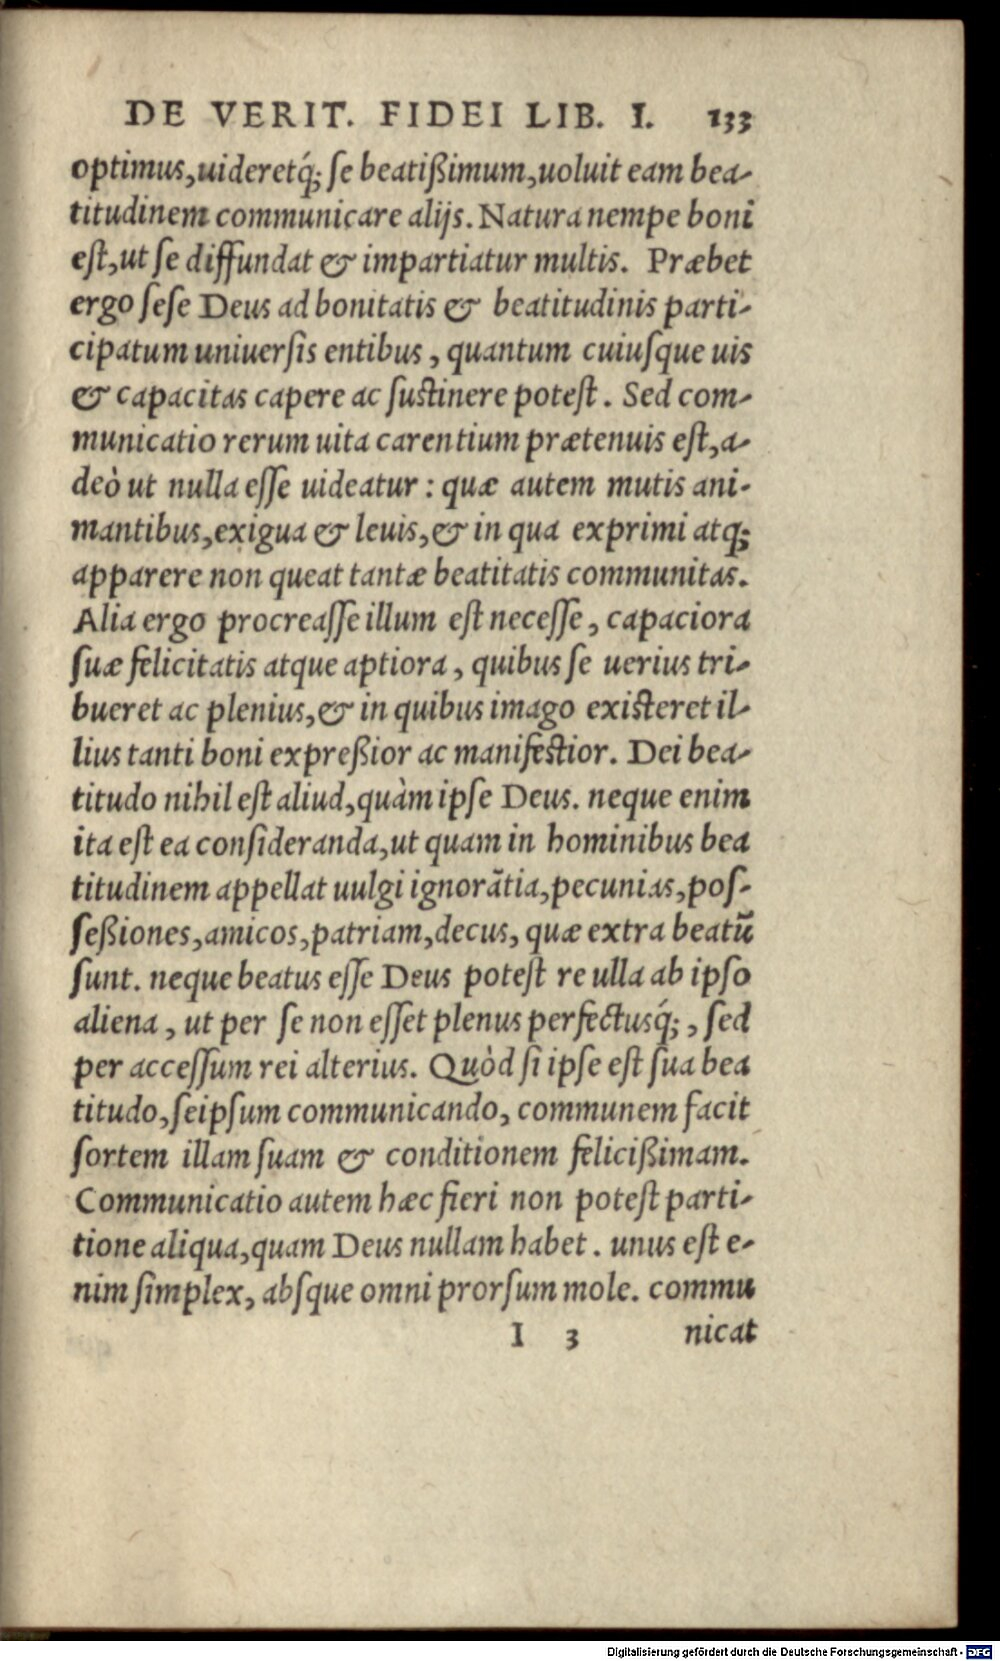 DE VERIT. FIDEI LIB. I. 133
optimus,uideretq́; ſe beatißimum,uoluit eam bea-
titudinem communicare alijs. Natura nempe boni
eſt,ut ſe diffundat & impartiatur multis. Præbet
ergo ſeſe Deus ad bonitatis & beatitudinis parti-
cipatum uniuerſis entibus, quantum cuiuſque uis
& capacitas capere ac ſuſtinere poteſt. Sed com-
municatio rerum uita carentium prætenuis eſt,a-
deò ut nulla eſſe uideatur: quæ autem mutis ani-
mantibus,exigua & leuis,& in qua exprimi atq;
apparere non queat tantæ beatitatis communitas.
Alia ergo procreaſſe illum eſt neceſſe, capaciora
ſuæ felicitatis atque aptiora, quibus ſe uerius tri-
bueret ac plenius,& in quibus imago exiſteret il-
lius tanti boni expreßior ac manifeſtior. Dei bea-
titudo nihil eſt aliud,quàm ipſe Deus. neque enim
ita eſt ea conſideranda,ut quam in hominibus bea
titudinem appellat uulgi ignorãtia,pecunias,poſ-
ſeßiones,amicos,patriam,decus, quæ extra beatũ
ſunt. neque beatus eſſe Deus poteſt re ulla ab ipſo
aliena, ut per ſe non eſſet plenus perfectusq́;, ſed
per acceſſum rei alterius. Quòd ſi ipſe eſt ſua bea
titudo,ſeipſum communicando, communem facit
ſortem illam ſuam & conditionem felicißimam.
Communicatio autem hæc fieri non poteſt parti-
tione aliqua,quam Deus nullam habet. unus eſt e-
nim ſimplex, abſque omni prorſum mole. commu
I 3 nicat
Digitalisierung gefördert durch die Deutsche Forschungsgemeinschaft - DFG